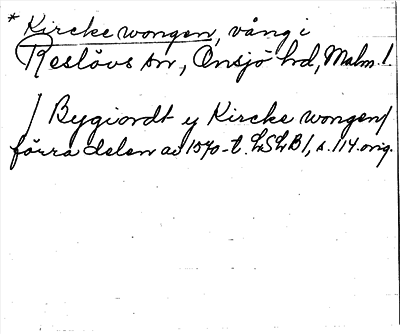 * Kircke wongen, vång i
Reslövs sn, Onsjö hd, Malm. l.
/ Bygiordt y Kircke wongen /
förra delen av 1570-t. LSLB 1, s. 114. orig.